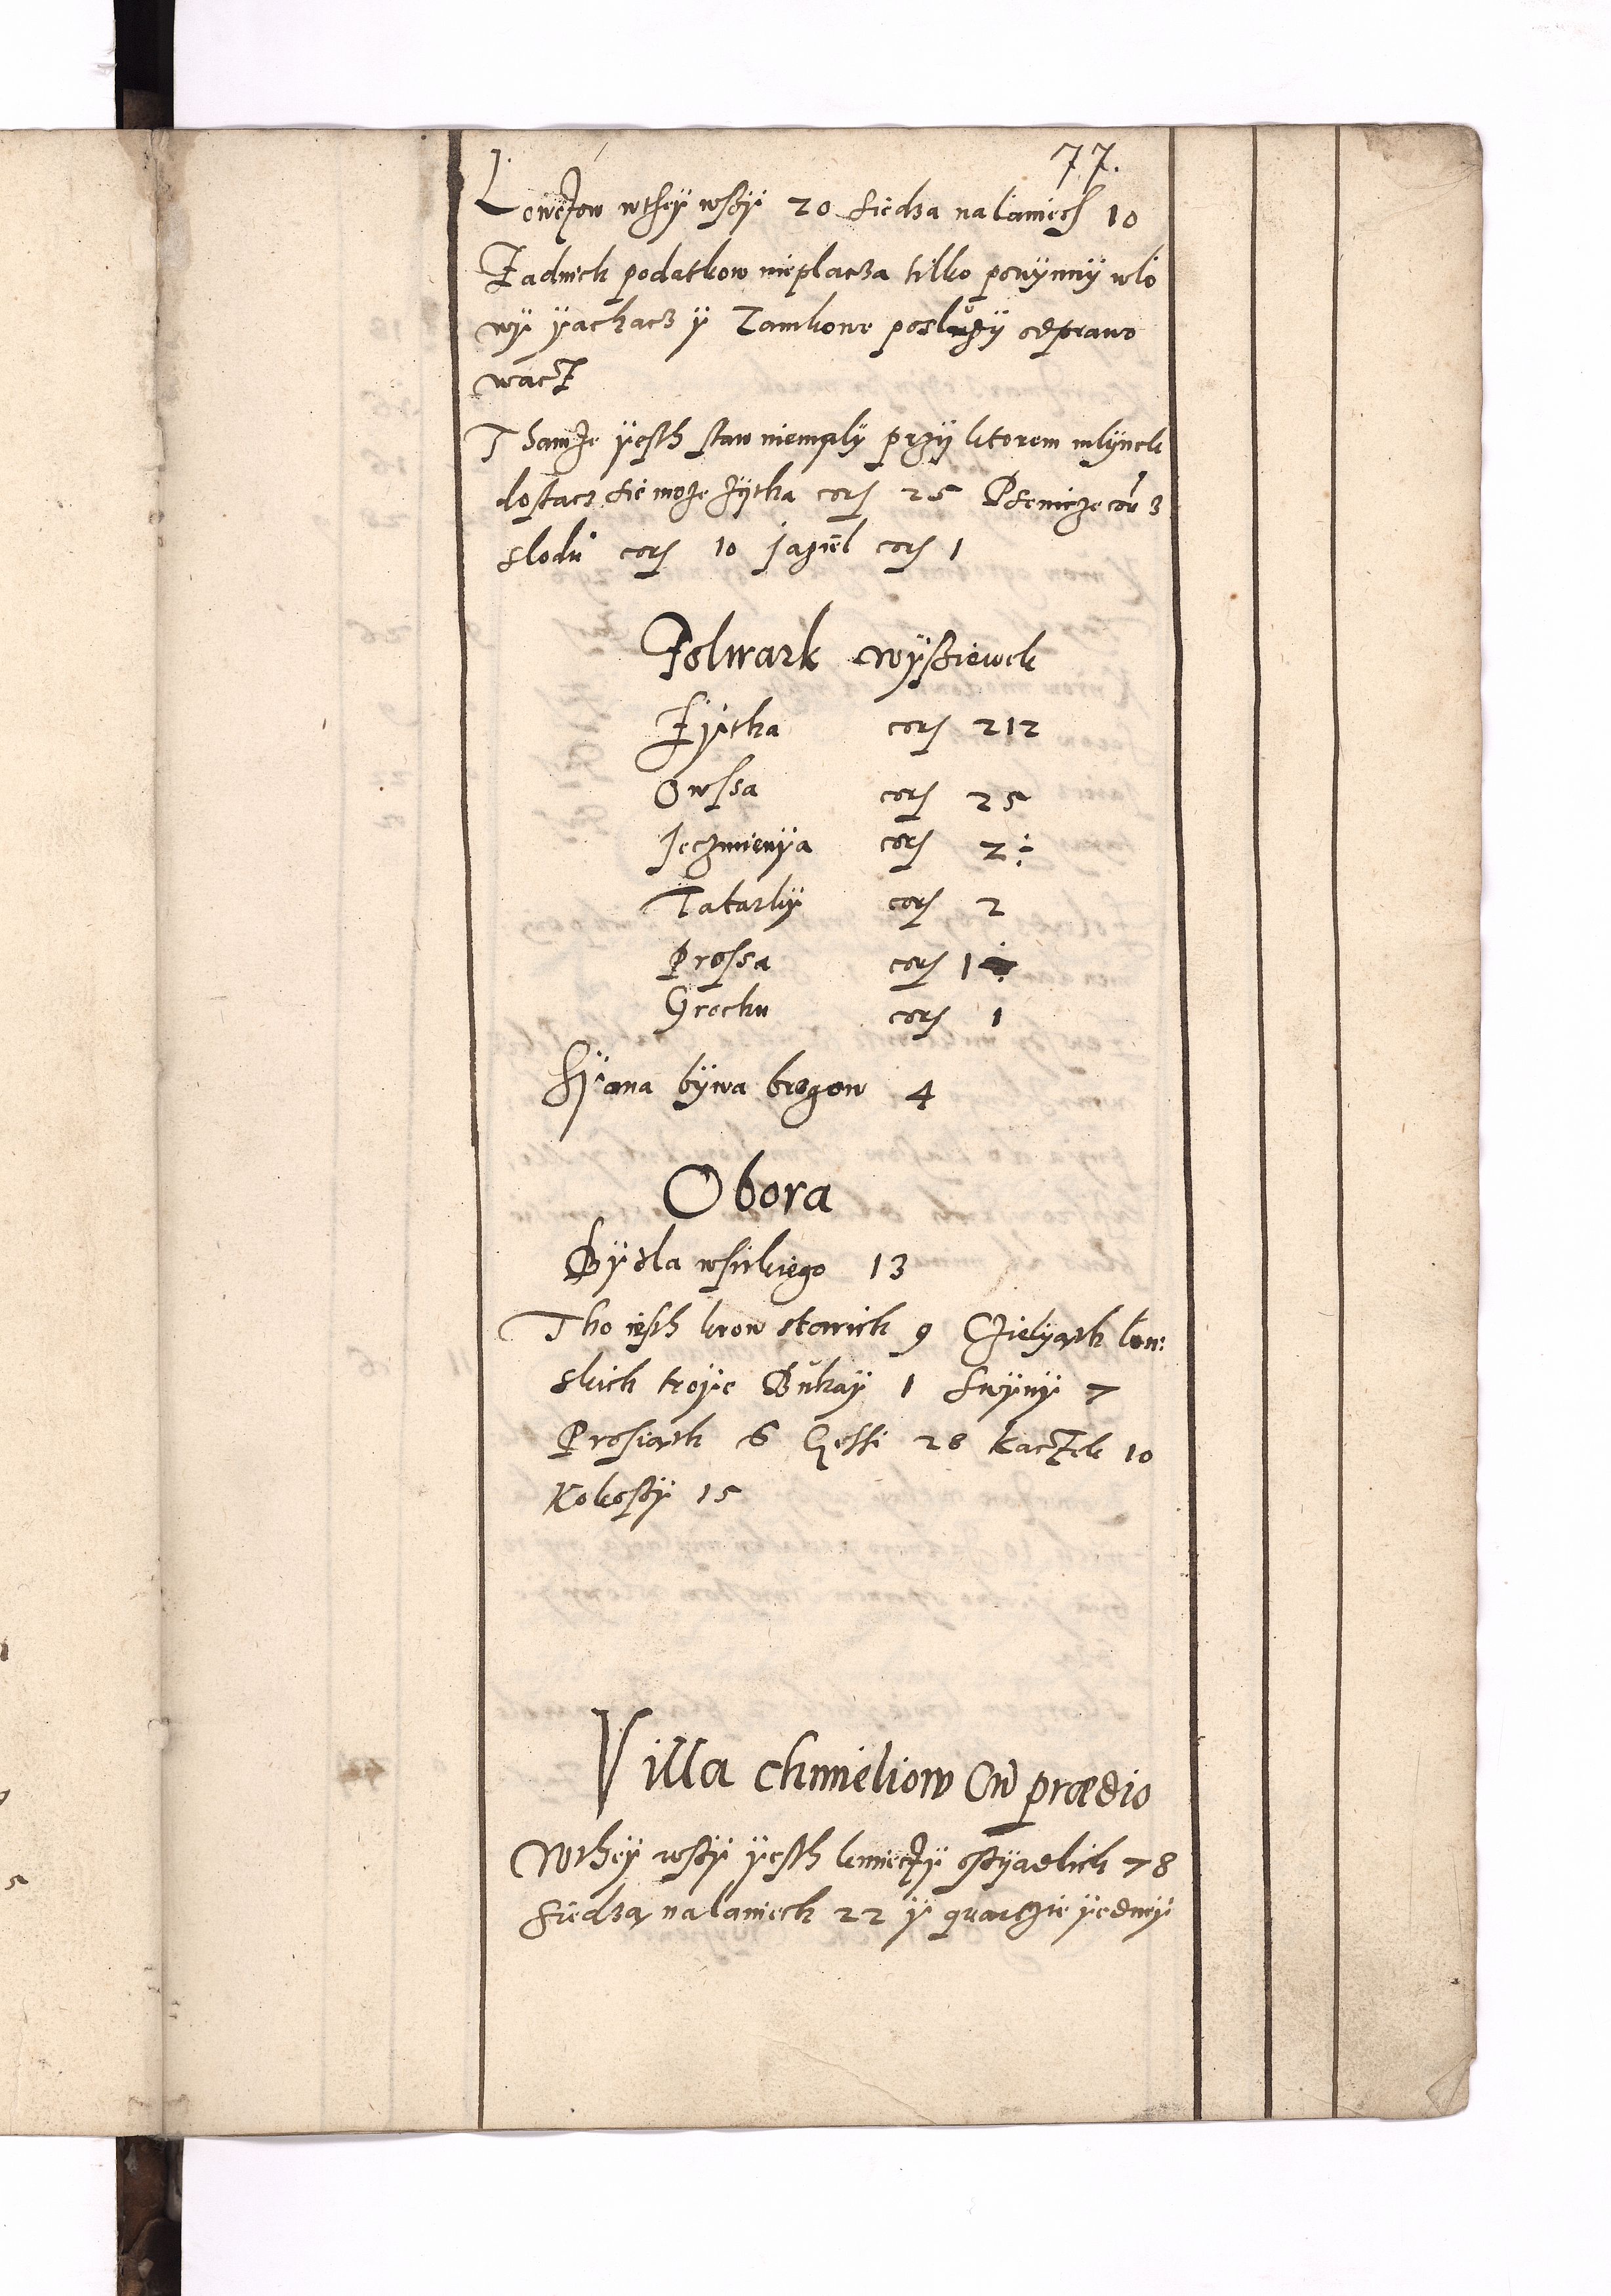 77.
Lowczow wthey wsßy 20 siedza na laniech 10
Zadnich podatkow nieplacza tilko powynny wlo
wy yachacz y Zamkowe poslugy odprawo
wacz
Thamże yesth staw niemaly przy ktorem mlynek
dostacz sie może żytha corς 25 Pseniczе corς 3
slodu corς 10 jagiel corς 1
Folwark wyßiewek
Żytha corς 212
Owssa corς 25
Jeczmienya corς 2÷
Tatarky corς 2
Prossa corς 1
Grochu corς 1
Syana bywa brogow 4
Obora
Bydla wsitkiego 13
Tho iesth krow starich 9 Czielyath lon:
skich troye Buhay 1 Swyny 7
Prosiąth 6 Gessi 28 kaczek 10
Kokoßy 15
Villa Chmieliow Cū prædio
Wthey wßy yesth kmieczy oßyadlich 78
siedzą na laniech 22 y quarczie yedney